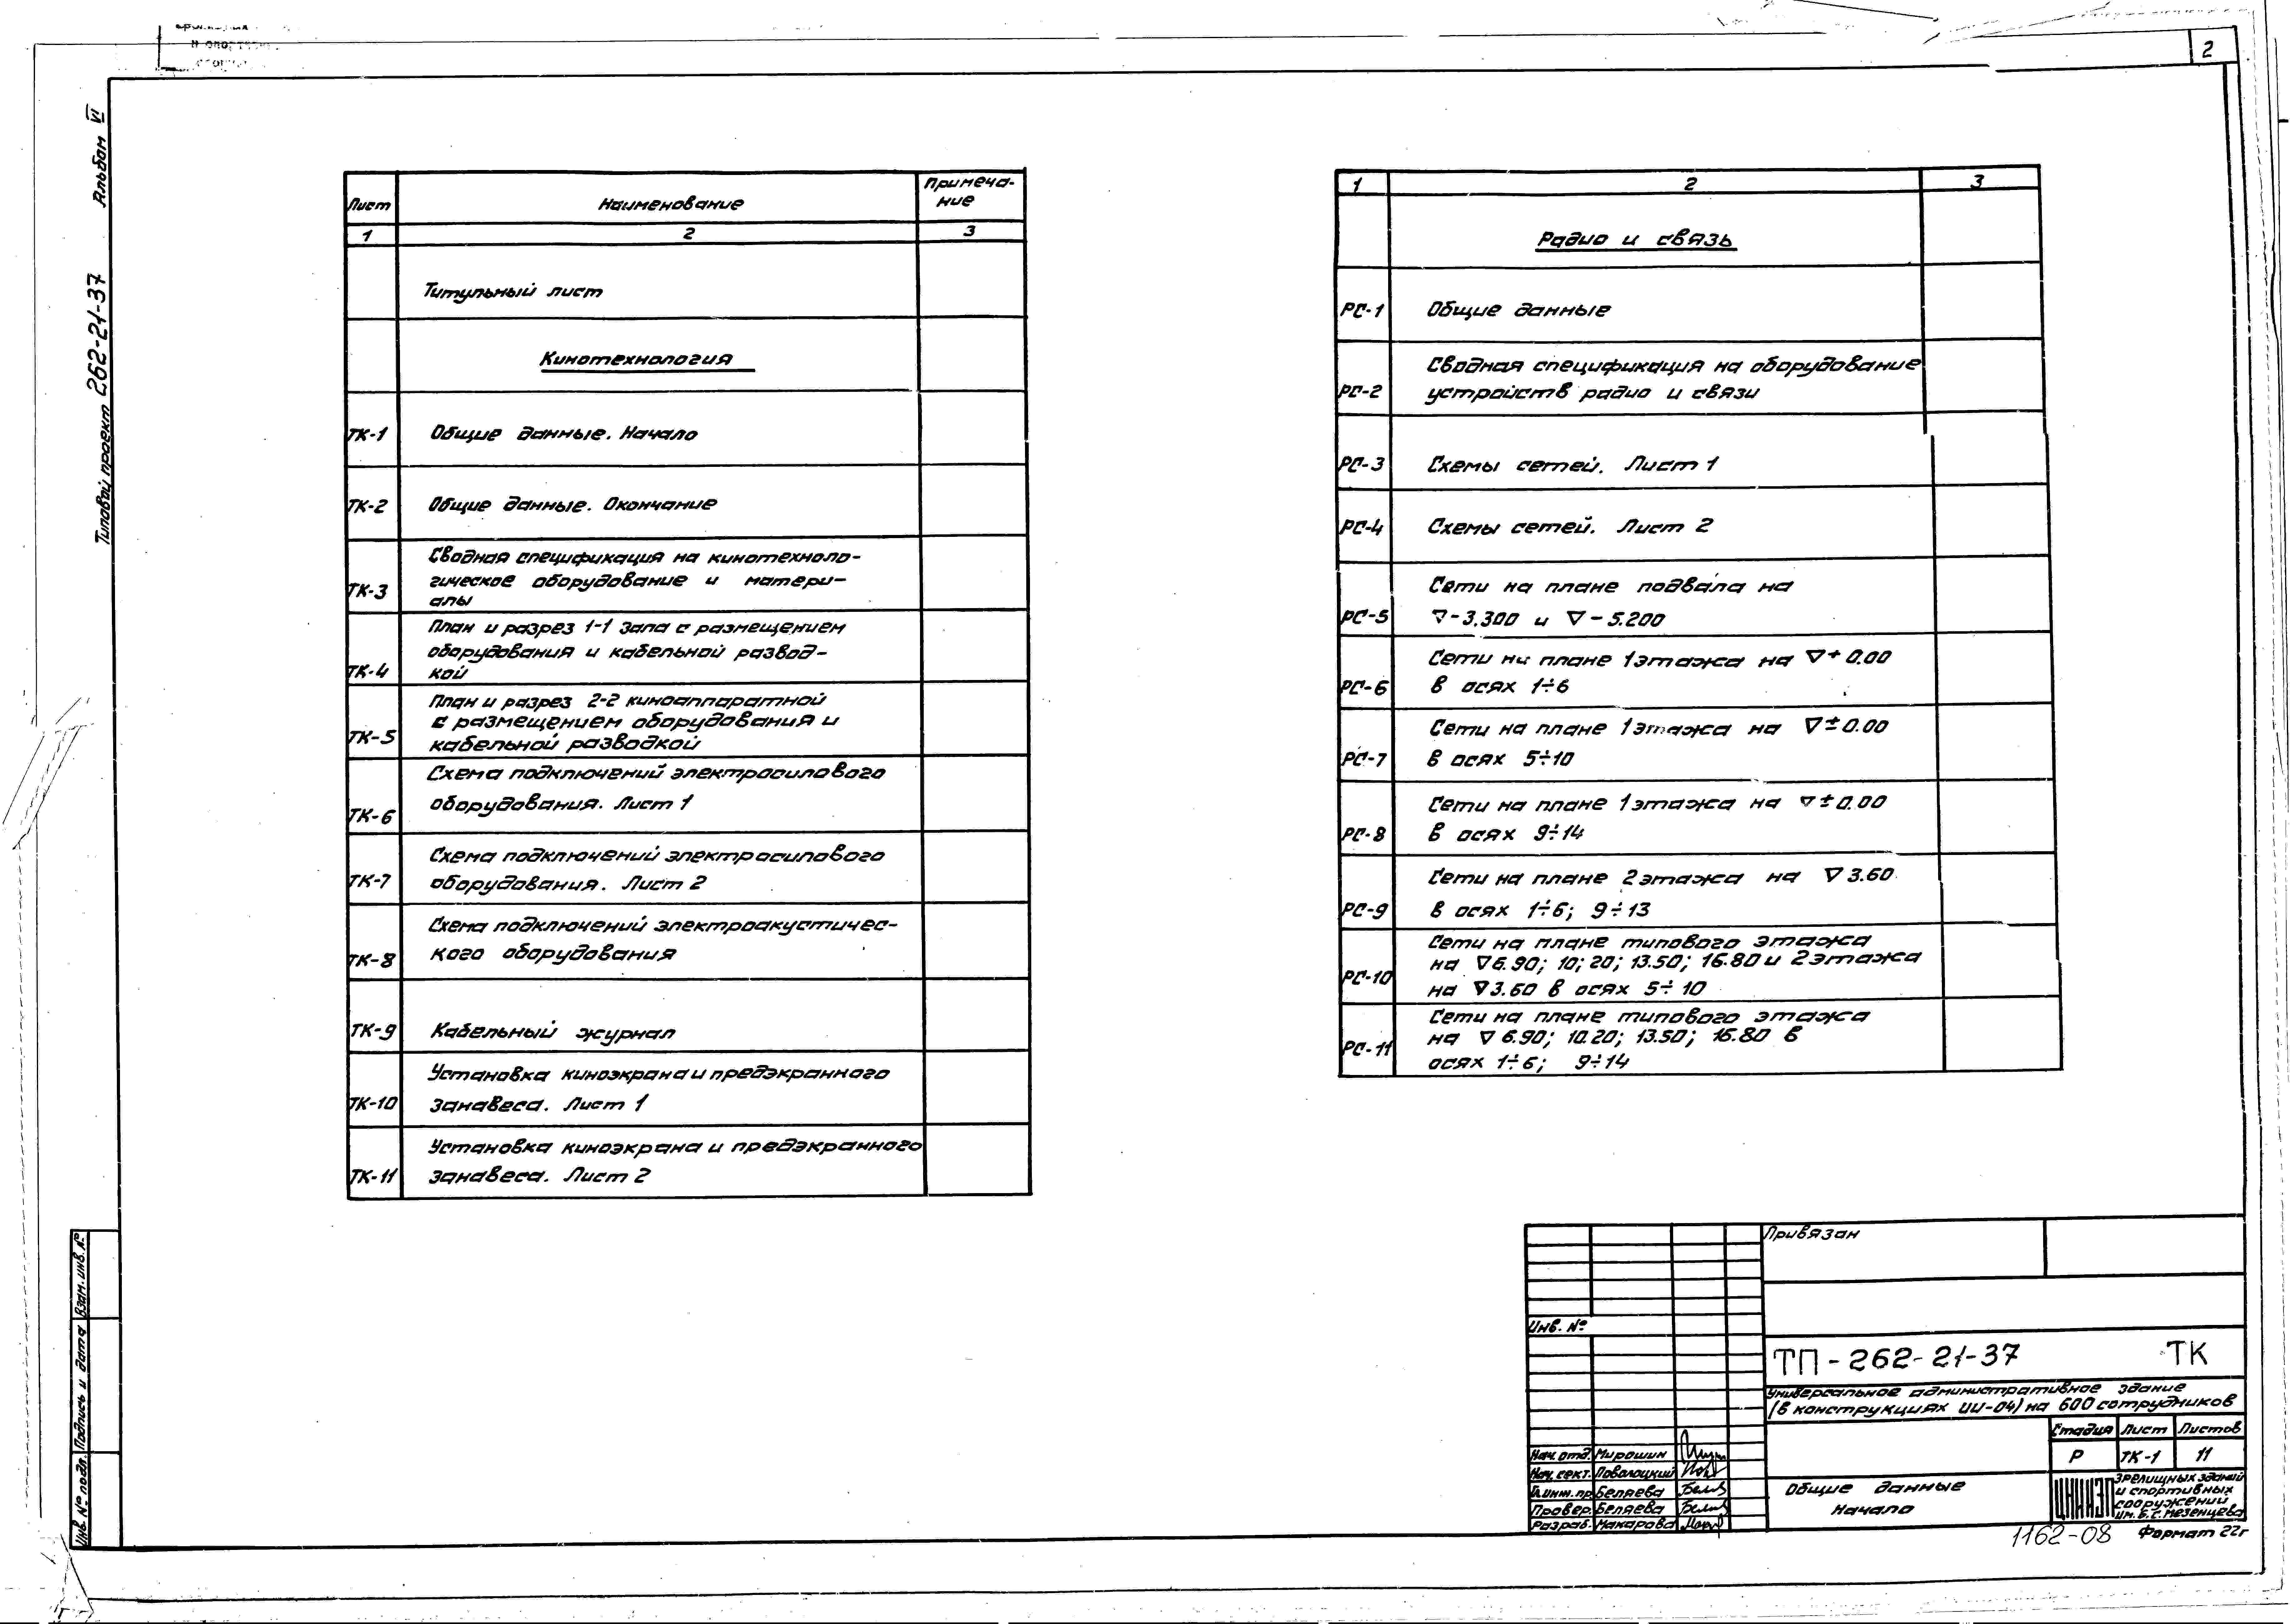 2
Альбом VI
Типовой проект 262-21-37
Лист
Наименование
Примеча-
ние
1 2 3
Титульный лист
Кинотехнология
ТК-1 Общие данные. Начало
ТК-2 Общие данные. Окончание
Сводная спецификация на кинотехноло-
ТК-3 гическое оборудование и матери-
алы
План и разрез 1-1 зала с размещением
оборудования и кабельной развод-
ТК-4 кой
План и разрез 2-2 киноаппаратной
с размещением оборудования и
ТК-5 кабельной разводкой
Схема подключений электросилового
ТК-6 оборудования. Лист 1
Схема подключений электросилового
ТК-7 оборудования. Лист 2
Схема подключений электроакустичес-
ТК-8 кого оборудования
ТК-9 Кабельный журнал
Установка киноэкрана и предэкранного
ТК-10 занавеса. Лист 1
Установка киноэкрана и предэкранного
ТК-11 занавеса. Лист 2
1 2 3
Радио и связь
РС-1 Общие данные
Сводная спецификация на оборудование
РС-2 устройств радио и связи
РС-3 Схемы сетей. Лист 1
РС-4 Схемы сетей. Лист 2
Сети на плане подвала на
РС-5 ∇-3.300 и ∇-5.200
Сети на плане 1 этажа на ∇+0.00
РС-6 в осях 1÷6
Сети на плане 1 этажа на ∇±0.00
РС-7 в осях 5÷10
Сети на плане 1 этажа на ∇±0.00
РС-8 в осях 9÷14
Сети на плане 2 этажа на ∇3.60
РС-9 в осях 1÷6; 9÷13
Сети на плане типового этажа
на ∇6.90; 10; 20; 13.50; 16.80 и 2 этажа
РС-10 на ∇3.60 в осях 5÷10
Сети на плане типового этажа
на ∇6.90; 10.20; 13.50; 16.80 в
РС-11 осях 1÷6; 9÷14
Взам. инв. №
Подпись и дата
Инв. № подл.
Привязан
Инв. №
ТП-262-21-37 ТК
Универсальное административное здание
(в конструкциях ИИ-04) на 600 сотрудников
Стадия Лист Листов
Р ТК-1 11
Нач. отд. Мирошин
Нач. сект. Поволоцкий
Гл.инж.пр. Беляева
Провер. Беляева
Разраб. Макарова
Общие данные
Начало
ЦНИИЭП
зрелищных зданий
и спортивных
сооружений
им. Б.С. Мезенцева
1162-08 Формат 22г